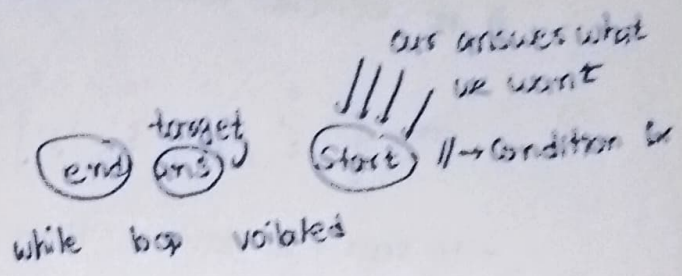 our answer what
we want
target
end ans start //→ condition for
while loop voilated